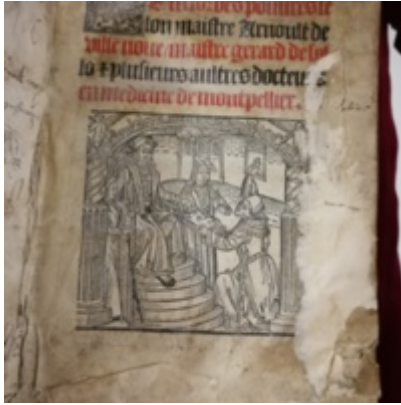 lon maistre Arnoult de
ville noue maistre gerard de so
lo ⁊ plusieurs aultres docteurs
en medicine de montpellier.